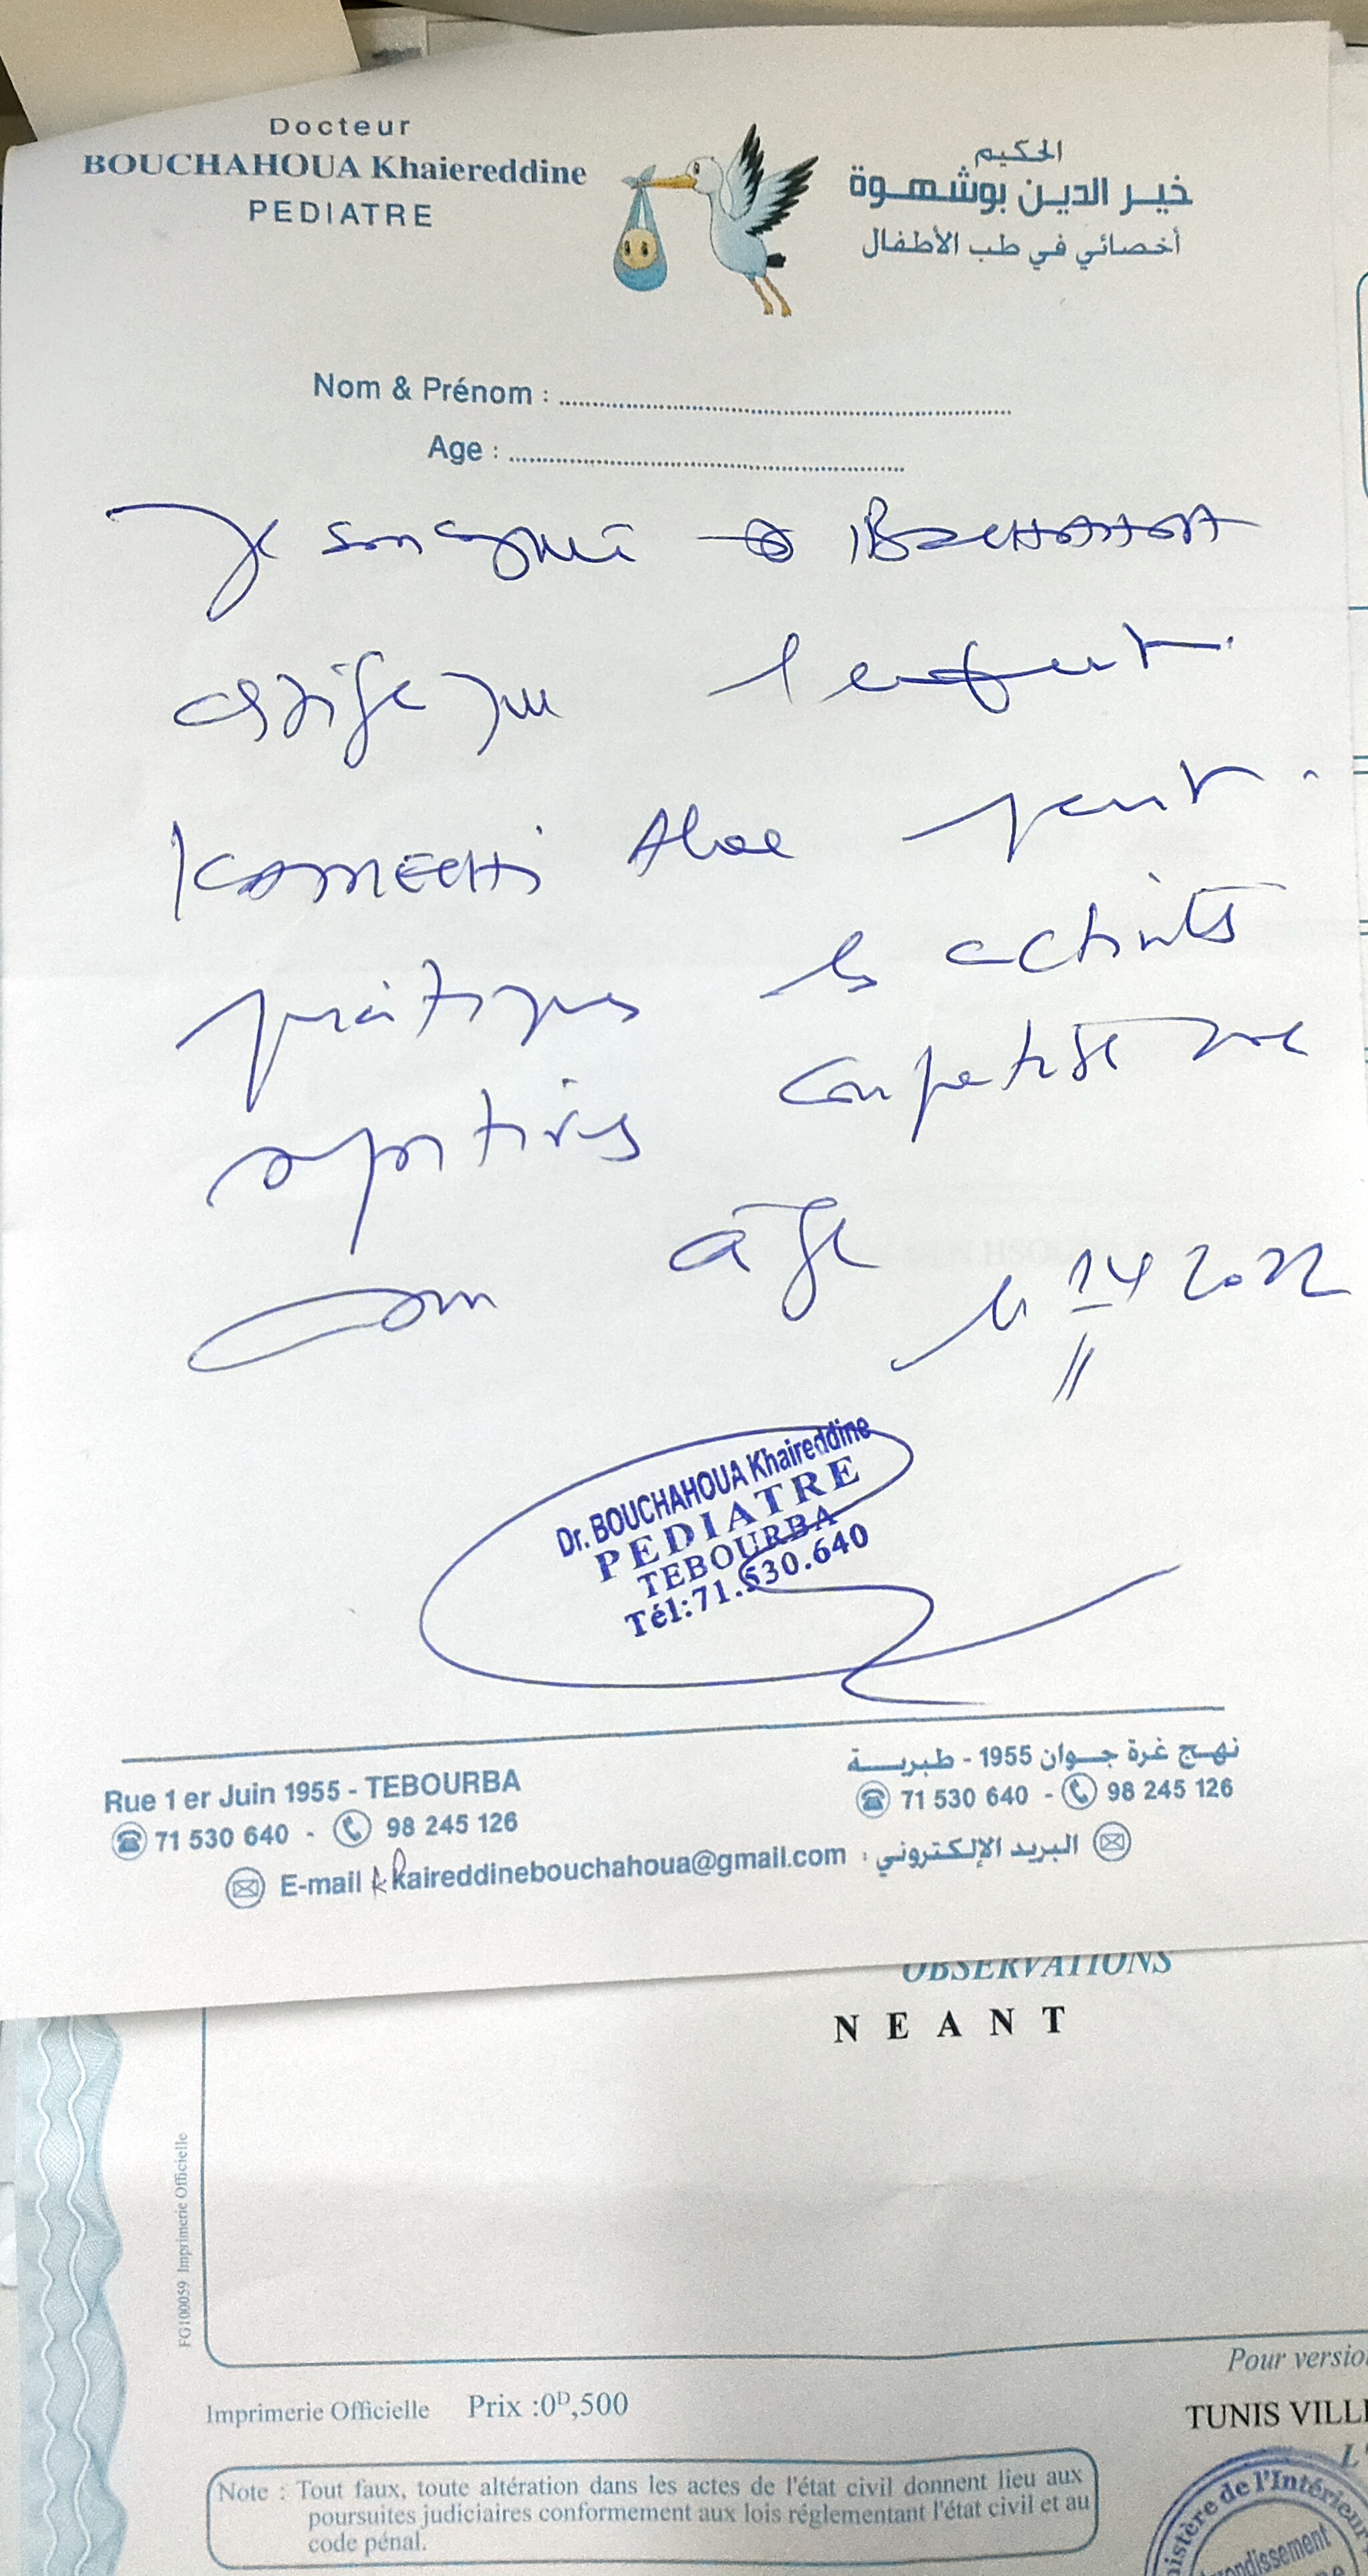 Docteur
BOUCHAHOUA Khaiereddine
PEDIATRE
الحكيم
خير الدين بوشهوة
أخصائي في طب الأطفال
Nom & Prénom :
Age :
Je soussigné Dr BOUCHAHOUA
certifie que l'enfant
KAMECHI peut
pratiquer les activités
sportives compatible avec
son âge
le 14 2022
11
Dr. BOUCHAHOUA Khaireddine
PEDIATRE
TEBOURBA
Tél:71.530.640
Rue 1 er Juin 1955 - TEBOURBA
71 530 640 - 98 245 126
نهج غرة جوان 1955 - طبربة
71 530 640 - 98 245 126
E-mail kkaireddinebouchahoua@gmail.com : البريد الإلكتروني
OBSERVATIONS
NEANT
FG100059 Imprimerie Officielle
Pour versio
Imprimerie Officielle Prix :0ᴰ,500
TUNIS VILL
L'
Note : Tout faux, toute altération dans les actes de l'état civil donnent lieu aux
poursuites judiciaires conformement aux lois réglementant l'état civil et au
code pénal.
istère de l'Intérieur
rondissement